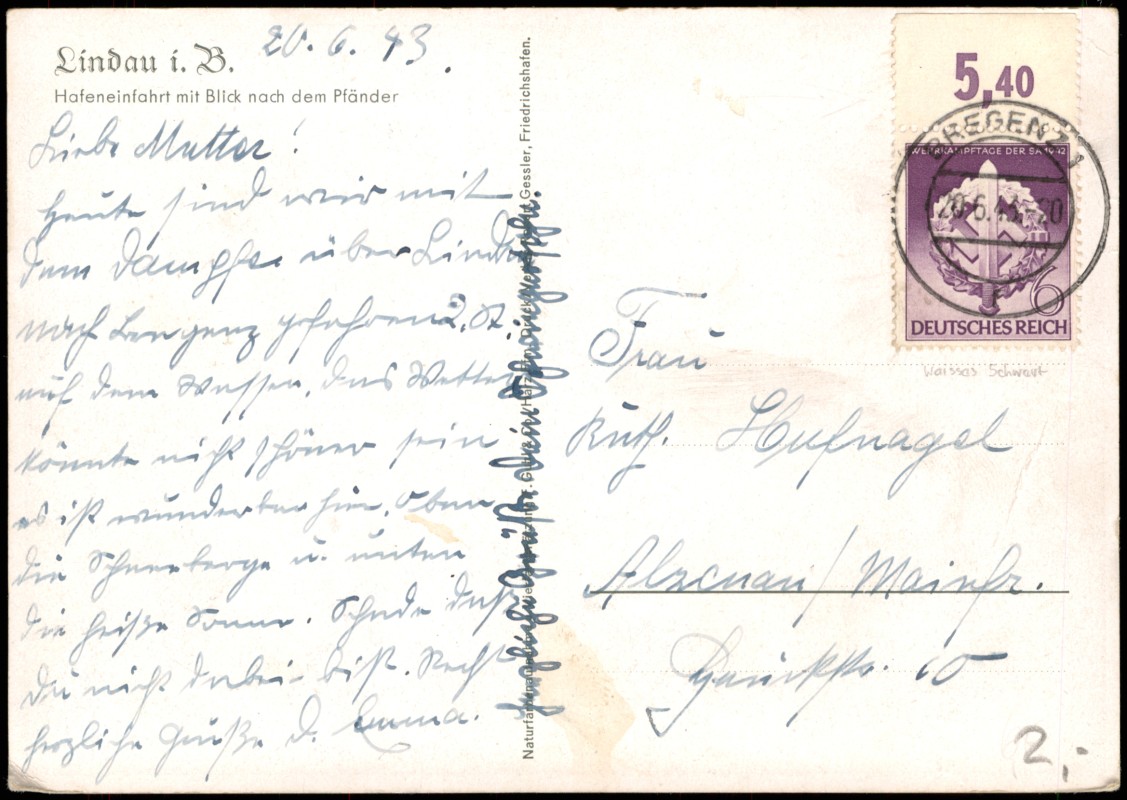 Lindau i. B. 20.6.43.
Hafeneinfahrt mit Blick nach dem Pfänder
Liebe Mutter!
Heute sind wir mit
dem Dampfer über Lindau
nach Bregenz gefahren 2. St
auf dem Wasser, das Wetter
könnte nicht schöner sein
es ist wunderbar hier, Oben
die Schneeberge u. unten
die heiße Sonne. Schade daß
Du nicht dabei bist. Recht
herzliche Grüße D. Emma.
Herzliche Grüße Dein
Gessler, Friedrichshafen.
5,40
BREGENZ 1
20.6.43.-20
WEHRKAMPFTAGE DER SA 1942
6
DEUTSCHES REICH
Waisses Schwert
Frau
Ruth. Hufnagel
Alzenau / Mainfr.
10
2,-